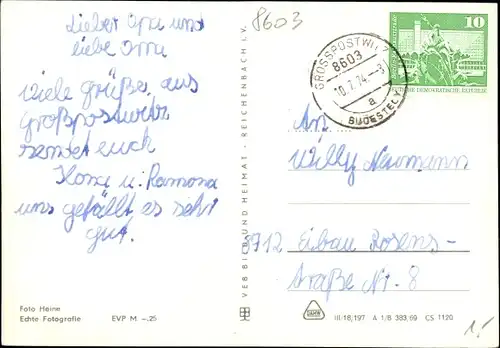 8603
Lieber Opa und
liebe Oma
Viele Grüße aus
Großpostwitz
sendet euch
u. Ramona
uns gefällt es sehr
gut.
VEB BILD UND HEIMAT · REICHENBACH I. V.
GROSSPOSTWITZ
8603
10.7.74
a
BUDESTELY
10
DEMOKRATISCHE REPUBLIK
An
Willy Neumann
8712 Eibau Rosens-
traße Nr. 8
Foto Heine
Echte Fotografie EVP M –,25
III/18/197 A 1/B 383/69 CS 1120
1,-